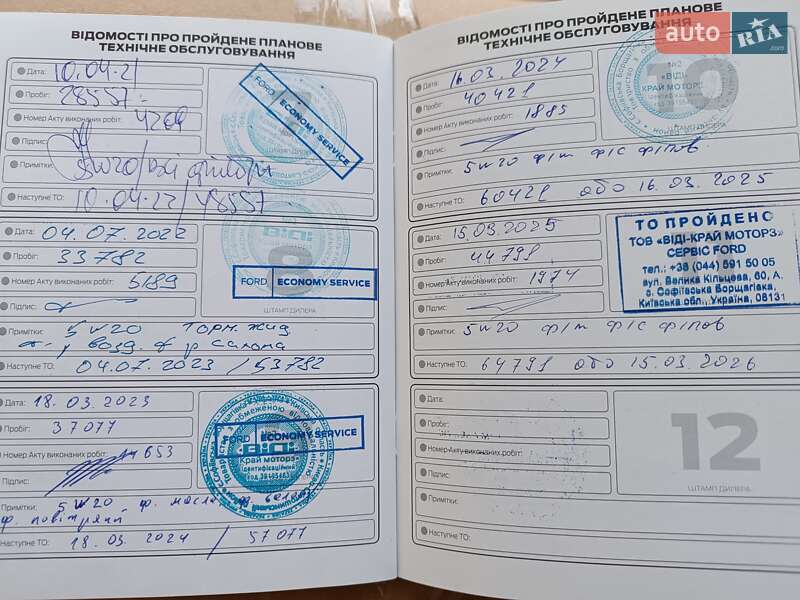 ВІДОМОСТІ ПРО ПРОЙДЕНЕ ПЛАНОВЕ
ТЕХНІЧНЕ ОБСЛУГОВУВАННЯ
Дата: 10.04.21
Пробіг: 28557
Номер Акту виконаних робіт: 4269
Підпис:
Примітки: 5w20/всі фільтри
Наступне ТО: 10.04.22/48557
FORD ECONOMY SERVICE
ШТАМП ДИЛЕРА
Дата: 04.07.2022
Пробіг: 33782
Номер Акту виконаних робіт: 5189
Підпис:
Примітки: 5w20 Торм. жид
возд. ф-р салона
Наступне ТО: 04.07.2023/53782
8
ВІДІ
FORD ECONOMY SERVICE
ШТАМП ДИЛЕРА
Дата: 18.03.2023
Пробіг: 37077
Номер Акту виконаних робіт: 653
Підпис:
Примітки: 5w20 ф. масла
ф. повітряний
Наступне ТО: 18.03.2024 / 57077
FORD ECONOMY SERVICE
ВІДІ
Край Моторз
ідентифікаційний
ВІДОМОСТІ ПРО ПРОЙДЕНЕ ПЛАНОВЕ
ТЕХНІЧНЕ ОБСЛУГОВУВАННЯ
Дата: 16.03.2024
Пробіг: 40421
Номер Акту виконаних робіт: 1885
Підпис:
Примітки: 5w20 фіт фіс фіпов
Наступне ТО: 60421 або 16.03.2025
10
№2
"ВІДІ-
КРАЙ МОТОРЗ"
ШТАМП ДИЛЕРА
Дата: 15.03.2025
Пробіг: 44791
Номер Акту виконаних робіт: 1974
Підпис:
Примітки: 5w20 фіт фіс фіпов
Наступне ТО: 64791 або 15.03.2026
ТО ПРОЙДЕНО
ТОВ «ВІДІ-КРАЙ МОТОРЗ»
СЕРВІС FORD
тел.: +38 (044) 591 50 05
вул. Велика Кільцева, 60, А,
с. Софіївська Борщагівка,
Київська обл., Україна, 08131
Дата:
Пробіг:
Номер Акту виконаних робіт:
Підпис:
Примітки:
Наступне ТО:
12
ШТАМП ДИЛЕРА
auto RIA.com